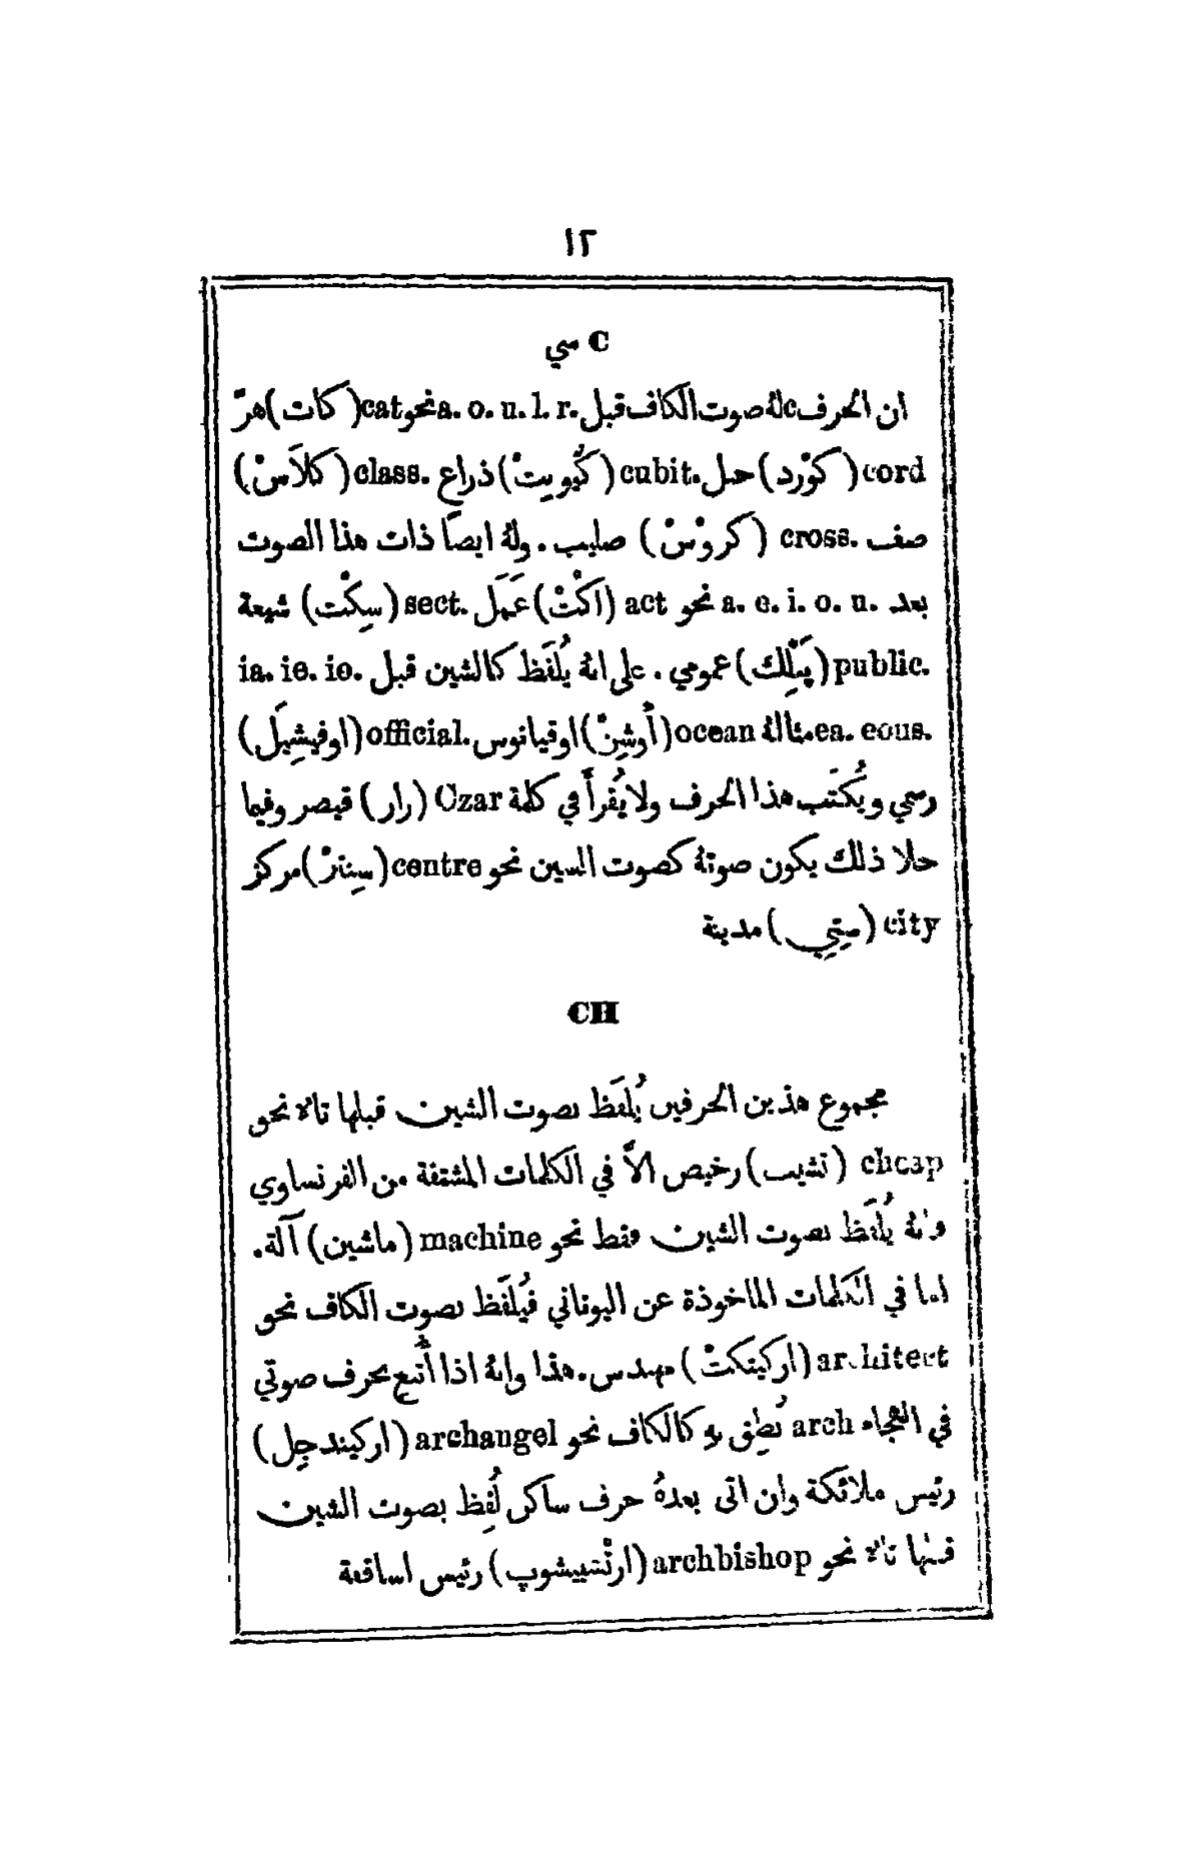 ١٢
C سي
ان الحرف c لهُ صوت الكاف قبل a. o. u. l. r. نحو cat (كات) هرّ
cord (كوْرد) حبل. cubit (كْيُوبِيتْ) ذراع. class (كلاَسْ)
صف. cross (كروْسْ) صليب. ولهُ ايضًا ذات هذا الصوت
بعد a. e. i. o. u. نحو act (اَكْتْ) عَمَل. sect (سِكْت) شيعة
public. (پَبْلِك) عمومي. على انهُ يُلفَظ كالشين قبل ia. ie. io.
ea. eous. مثالهُ ocean (أُوشِنْ) اوقيانوس. official (اوفيشِيَل)
رسمي ويُكتَب هذا الحرف ولا يُقرأ في كلمة Czar (زار) قيصر وفيما
خلا ذلك يكون صوتهُ كصوت السين نحو centre (سِنترْ) مركز
city (سِتِي) مدينة
CH
مجموع هذين الحرفين يُلفَظ بصوت الشين قبلها تاءٌ نحو
cheap (تشيب) رخيص الاَّ في الكلمات المشتقة من الفرنساوي
فانهُ يُلفَظ بصوت الشين فقط نحو machine (ماشين) آلة.
اما في الكلمات الماخوذة عن اليوناني فيُلفَظ بصوت الكاف نحو
architect (اركيتكتْ) مهندس. هذا وانهُ اذا أُتبِع بحرف صوتي
في الهجاء arch نُطِق بهِ كالكاف نحو archangel (اركيندجِل)
رئيس ملائكة وان اتى بعدهُ حرف ساكن لُفِظ بصوت الشين
قبلها تاءٌ نحو archbishop (ارتْشبيشوپ) رئيس اساقفة